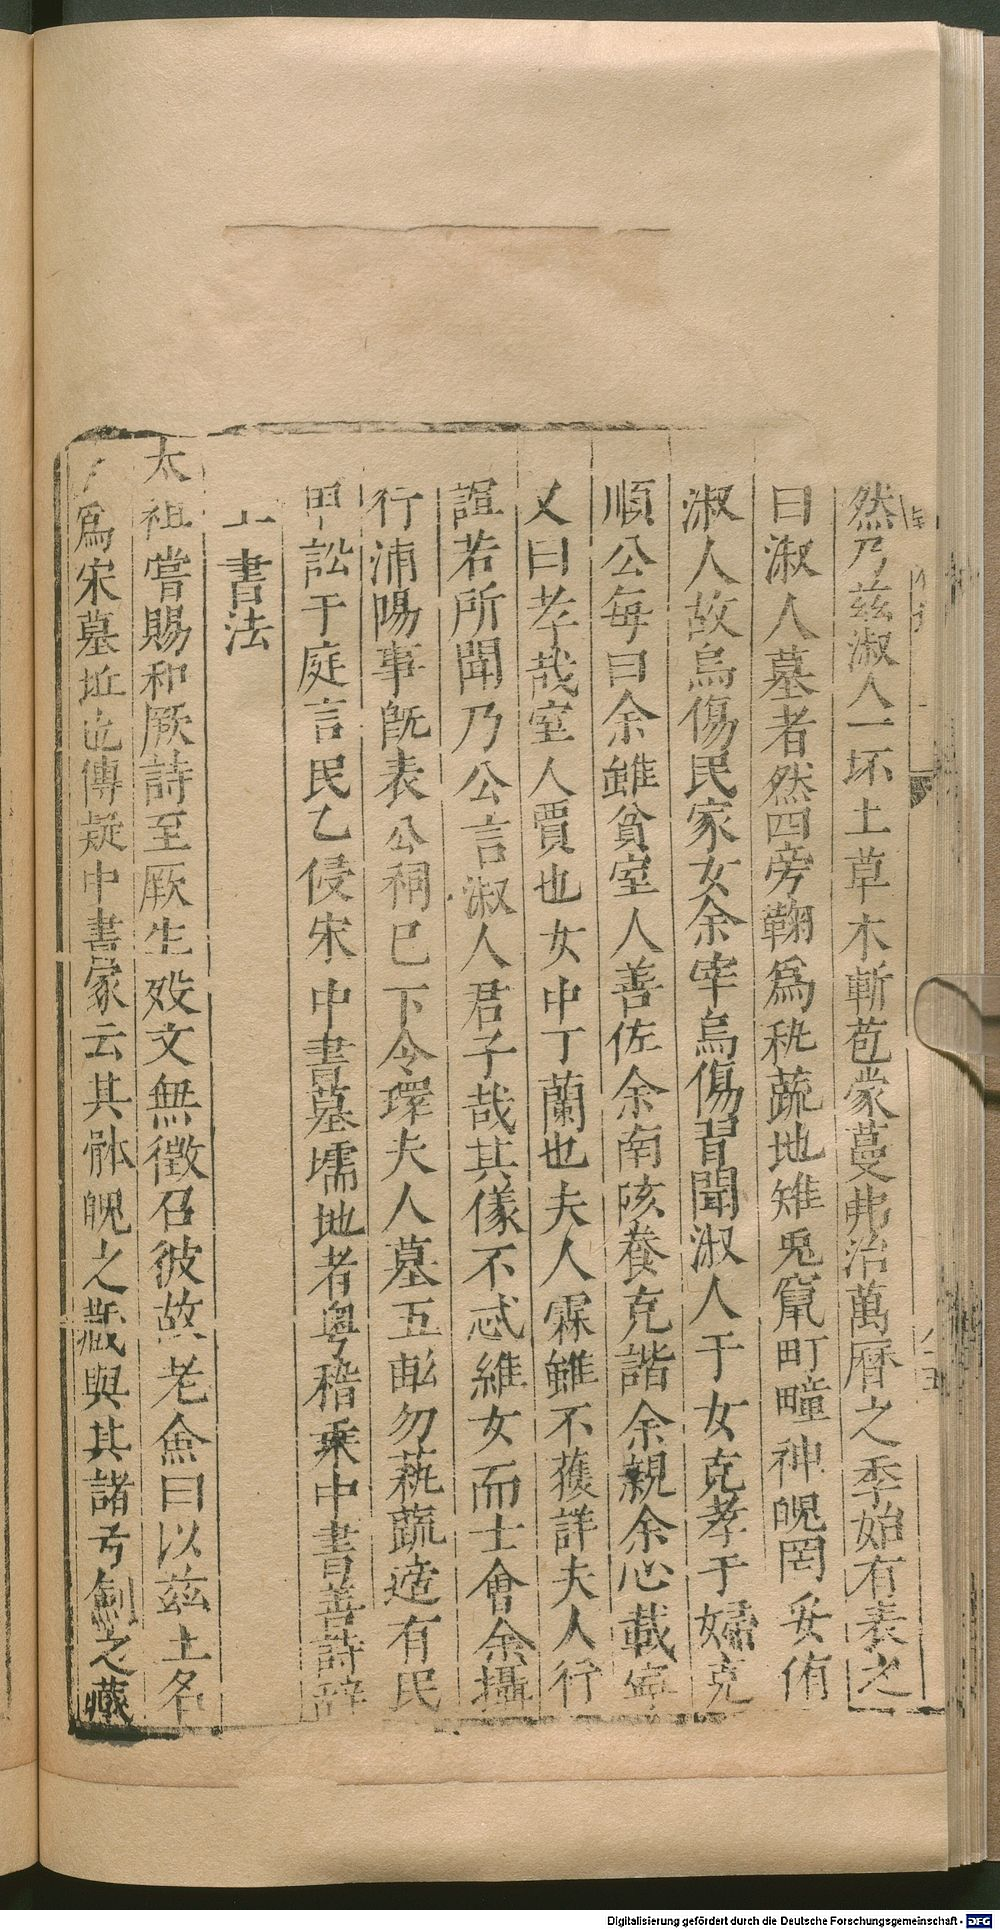 然乃茲淑人一坏土草木蔪苞蒙蔓弗治萬曆之季始有表之
曰淑人墓者然四旁鞠爲秇蔬地雉兎竄町疃神魄罔妥侑
淑人故烏傷民家女余宰烏傷習聞淑人于女克孝于婦克
順公每曰余雖貧室人善佐余南陔養克諧余親余心載寧
又曰孝哉室人賈也女中丁蘭也夫人霖雖不獲詳夫人行
誼若所聞乃公言淑人君子哉其儀不忒維女而士會余攝
行浦陽事旣表公祠已下令環夫人墓五畝勿蓺蔬适有民
甲訟于庭言民乙侵宋中書墓壖地者粤稽乘中書善詩辭
工書法
太祖嘗賜和厥詩至厥生歿文無徵召彼故老僉曰以茲土名
爲宋墓址也傳疑中書冢云其骵魄之藏與其諸弓劍之藏